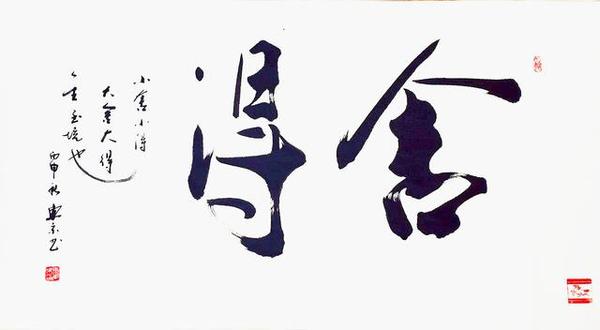 舍得
小舍小得
大舍大得
人生至境也
丙申秋